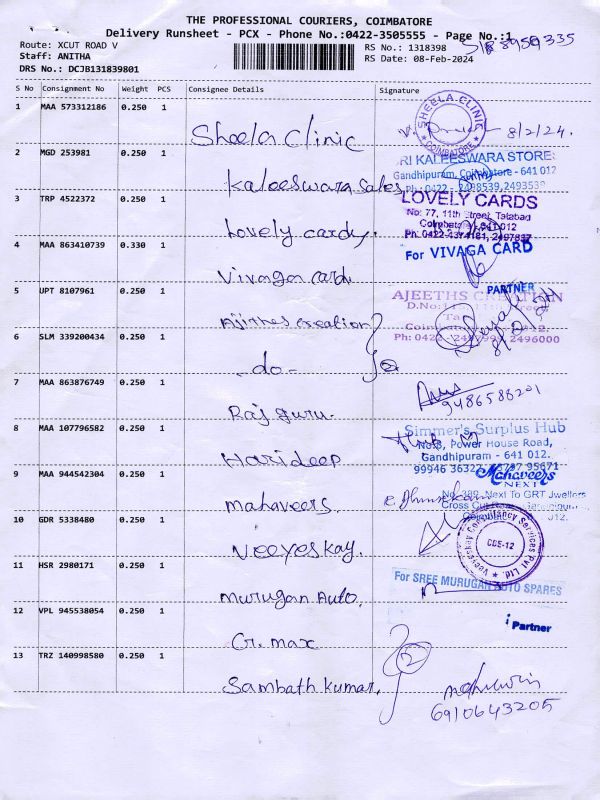 THE PROFESSIONAL COURIERS, COIMBATORE
Delivery Runsheet - PCX - Phone No.:0422-3505555 - Page No.:1
Route: XCUT ROAD V
RS No.: 1318398
Staff: ANITHA
RS Date: 08-Feb-2024
DRS No.: DCJB131839801
S No Consignment No Weight PCS Consignee Details Signature
1 MAA 573312186 0.250 1
Sheela Clinic
SHEELA CLINIC
COIMBATORE
8/2/24.
2 MGD 253981 0.250 1
Kaleeswara Sales
RI KALEESWARA STORE
Gandhipuram, Coimbatore - 641 012
Ph: 0422 - 2498539, 2493539
3 TRP 4522372 0.250 1
Lovely cardy.
LOVELY CARDS
No: 77, 11th Street, Tatabad
Coimbatore - 641 012
4 MAA 863410739 0.330 1
Vivaga card
For VIVAGA CARD
PARTNER
5 UPT 8107961 0.250 1
Ajithes creation
AJEETHS CREATION
6 SLM 339200434 1 0.250
- do -
7 MAA 863876749 0.250 1
Raj guru.
9486588201
8 MAA 107796582 0.250 1
Hari deep
Simmer's Surplus Hub
No:8, Power House Road,
Gandhipuram - 641 012.
9 MAA 944542304 0.250 1
mahaveers.
Mahaveers
NEXT
Next To GRT Jwellers
10 GDR 5338480 0.250 1
Veeyes kay.
Veeyeskay Consultancy Services Pvt. Ltd.
CBE-12
11 HSR 2980171 0.250 1
murugan Auto.
For SREE MURUGAN AUTO SPARES
Partner
12 VPL 945538054 0.250 1
Cr. max
13 TRZ 140998580 0.250 1
Sambath kumar.
6910643205